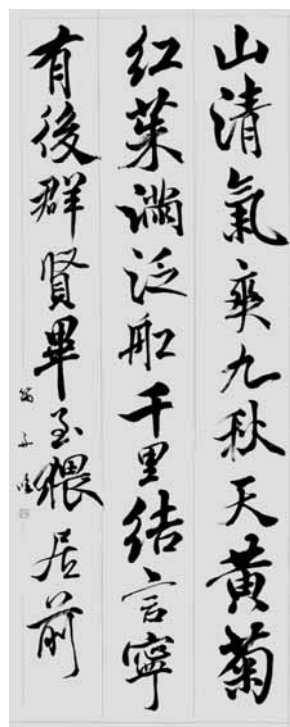 山清氣爽九秋天黄菊
紅茱滿泛舡千里結言寧
有後群賢畢至猥居前